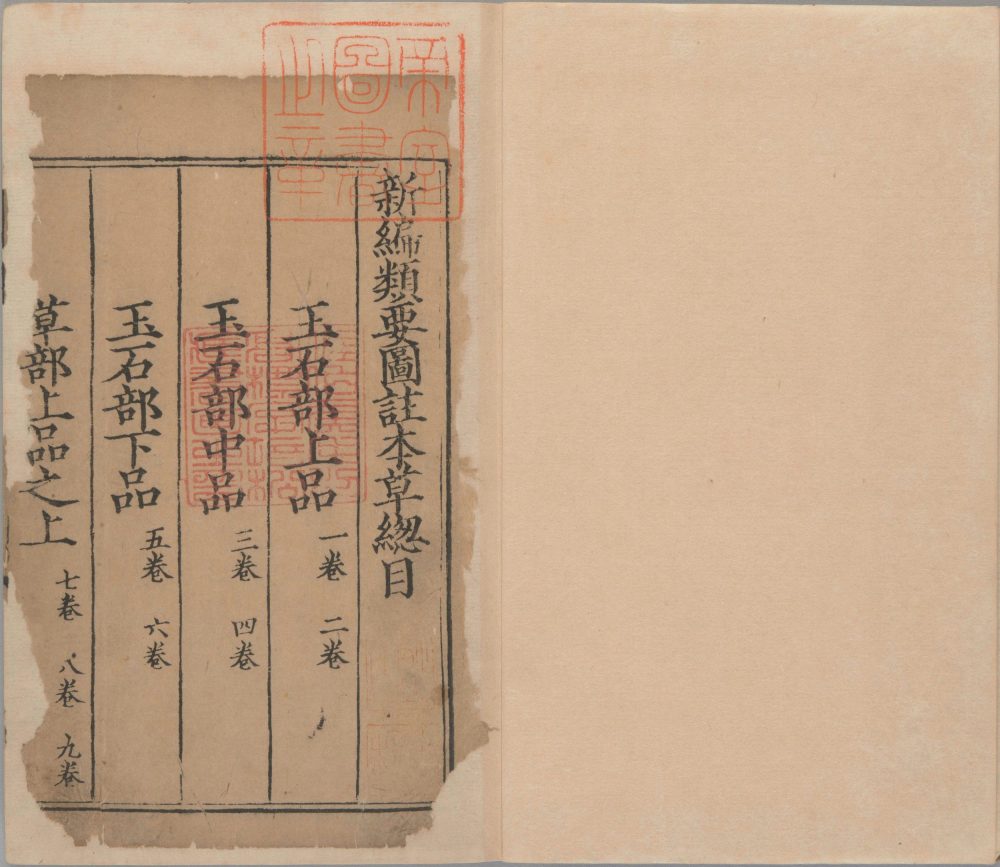 新編類要圖註本草總目
玉石部上品 一卷 二卷
玉石部中品 三卷 四卷
玉石部下品 五卷 六卷
草部上品之上 七卷 八卷 九卷